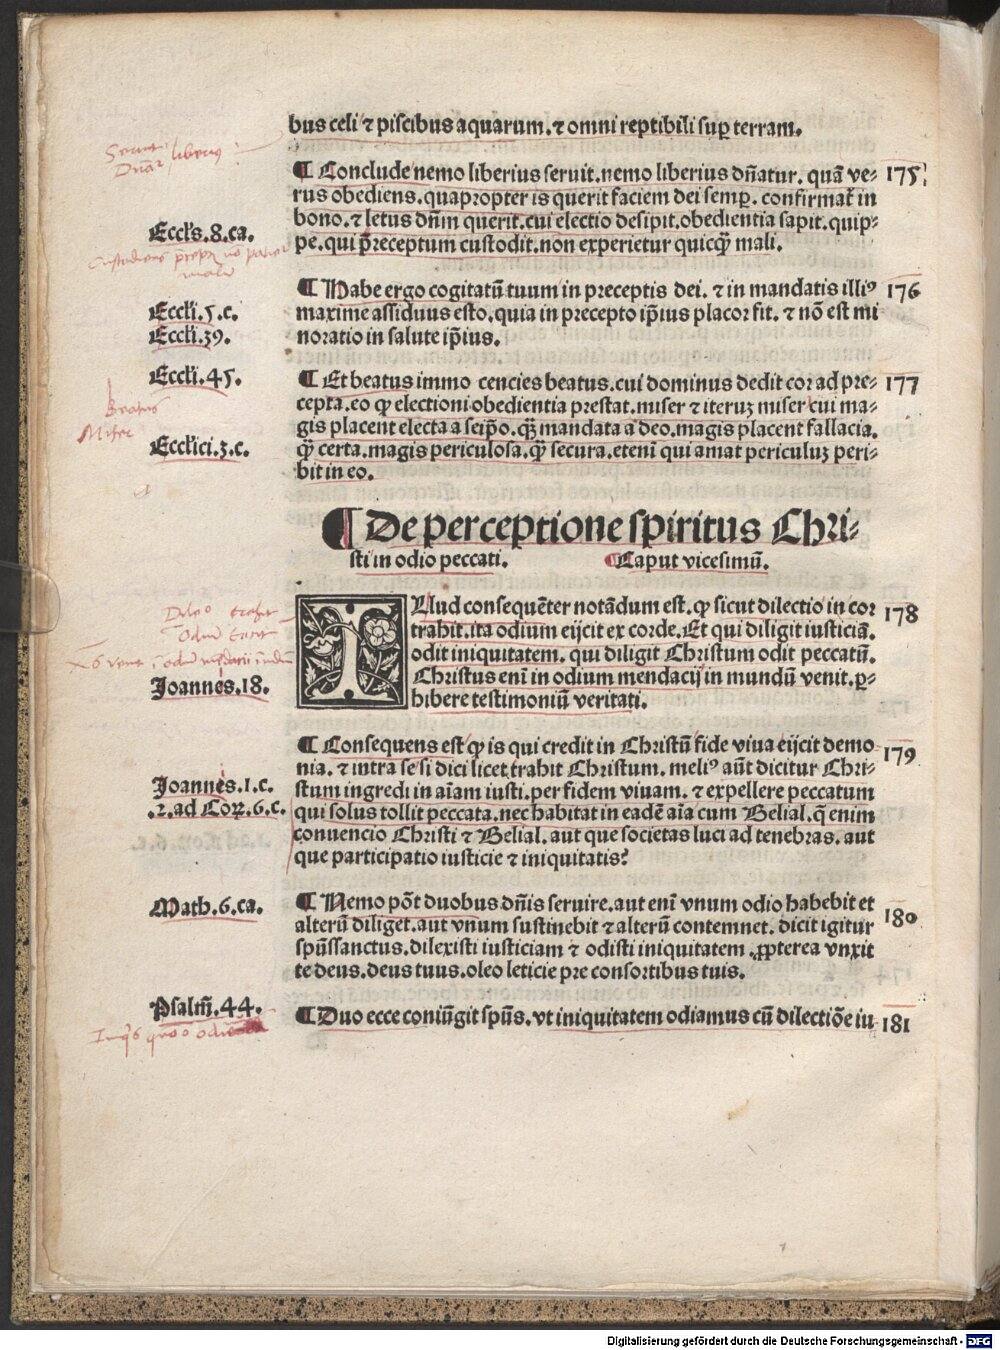 bus celi ⁊ piscibus aquarum. ⁊ omni reptibili suꝑ terram.
Seruit
Dn̄at liberius
¶ Conclude nemo liberius seruit. nemo liberius dn̄atur. quā ve⸗ 175
rus obediens. quapropter is querit faciem dei semꝑ. confirmat̄ in
bono. ⁊ letus dn̄m querit. cui electio desipit. obedientia sapit. quip⸗
Eccl's. 8. ca.
pe. qui p̄receptum custodit. non experietur quicꝙ̄ mali.
¶ Habe ergo cogitatū tuum in preceptis dei. ⁊ in mandatis illiꝰ 176
Eccl'i. 5. c.
maxime assiduus esto. quia in precepto ip̄ius placor fit. ⁊ nō est mi
Eccl'i. 39.
noratio in salute ip̄ius.
Eccl'i. 45.
¶ Et beatus immo cencies beatus. cui dominus dedit cor ad pre⸗ 177
Beatus
cepta. eo ꝙ electioni obedientia prestat. miser ⁊ iteruꝫ miser cui ma⸗
Miser
gis placent electa a seip̄o. qꝫ̄ mandata a deo. magis placent fallacia.
Eccl'ici. 3. c.
ꝙ̄ certa. magis periculosa. ꝙ̄ secura. etenī qui amat periculuꝫ peri⸗
bit in eo.
¶ De perceptione spiritus Chri⸗
sti in odio peccati. ¶ Caput vicesimū.
ILlud consequēter notādum est. ꝙ sicut dilectio in cor 178
trahit. ita odium eijcit ex corde. Et qui diligit iusticiā.
odit iniquitatem. qui diligit Christum odit peccatū.
Joannes. 18.
Christus enī in odium mendacij in mundū venit. ꝑ⸗
hibere testimoniū veritati.
¶ Consequens est ꝙ is qui credit in Christū fide viua eijcit demo 179
nia. ⁊ intra se si dici licet trahit Christum. meliꝰ aūt dicitur Chri⸗
Joannes. 1. c.
stum ingredi in aīam iusti. per fidem viuam. ⁊ expellere peccatum
.2. ad Coꝝ. 6. c.
qui solus tollit peccata. nec habitat in eadē aīa cum Belial. q̄ enim
conuencio Christi ⁊ Belial. aut que societas luci ad tenebras. aut
que participatio iusticie ⁊ iniquitatis?
Math. 6. ca.
¶ Nemo pōt duobus dn̄is seruire. aut enī vnum odio habebit et
alterū diliget. aut vnum sustinebit ⁊ alterū contemnet. dicit igitur 180
spūssanctus. dilexisti iusticiam ⁊ odisti iniquitatem .ꝓpterea vnxit
te deus. deus tuus. oleo leticie pre consortibus tuis.
Psalm̄. 44.
¶ Duo ecce coniūgit spūs. vt iniquitatem odiamus cū dilectiōe iu 181
Digitalisierung gefördert durch die Deutsche Forschungsgemeinschaft - DFG